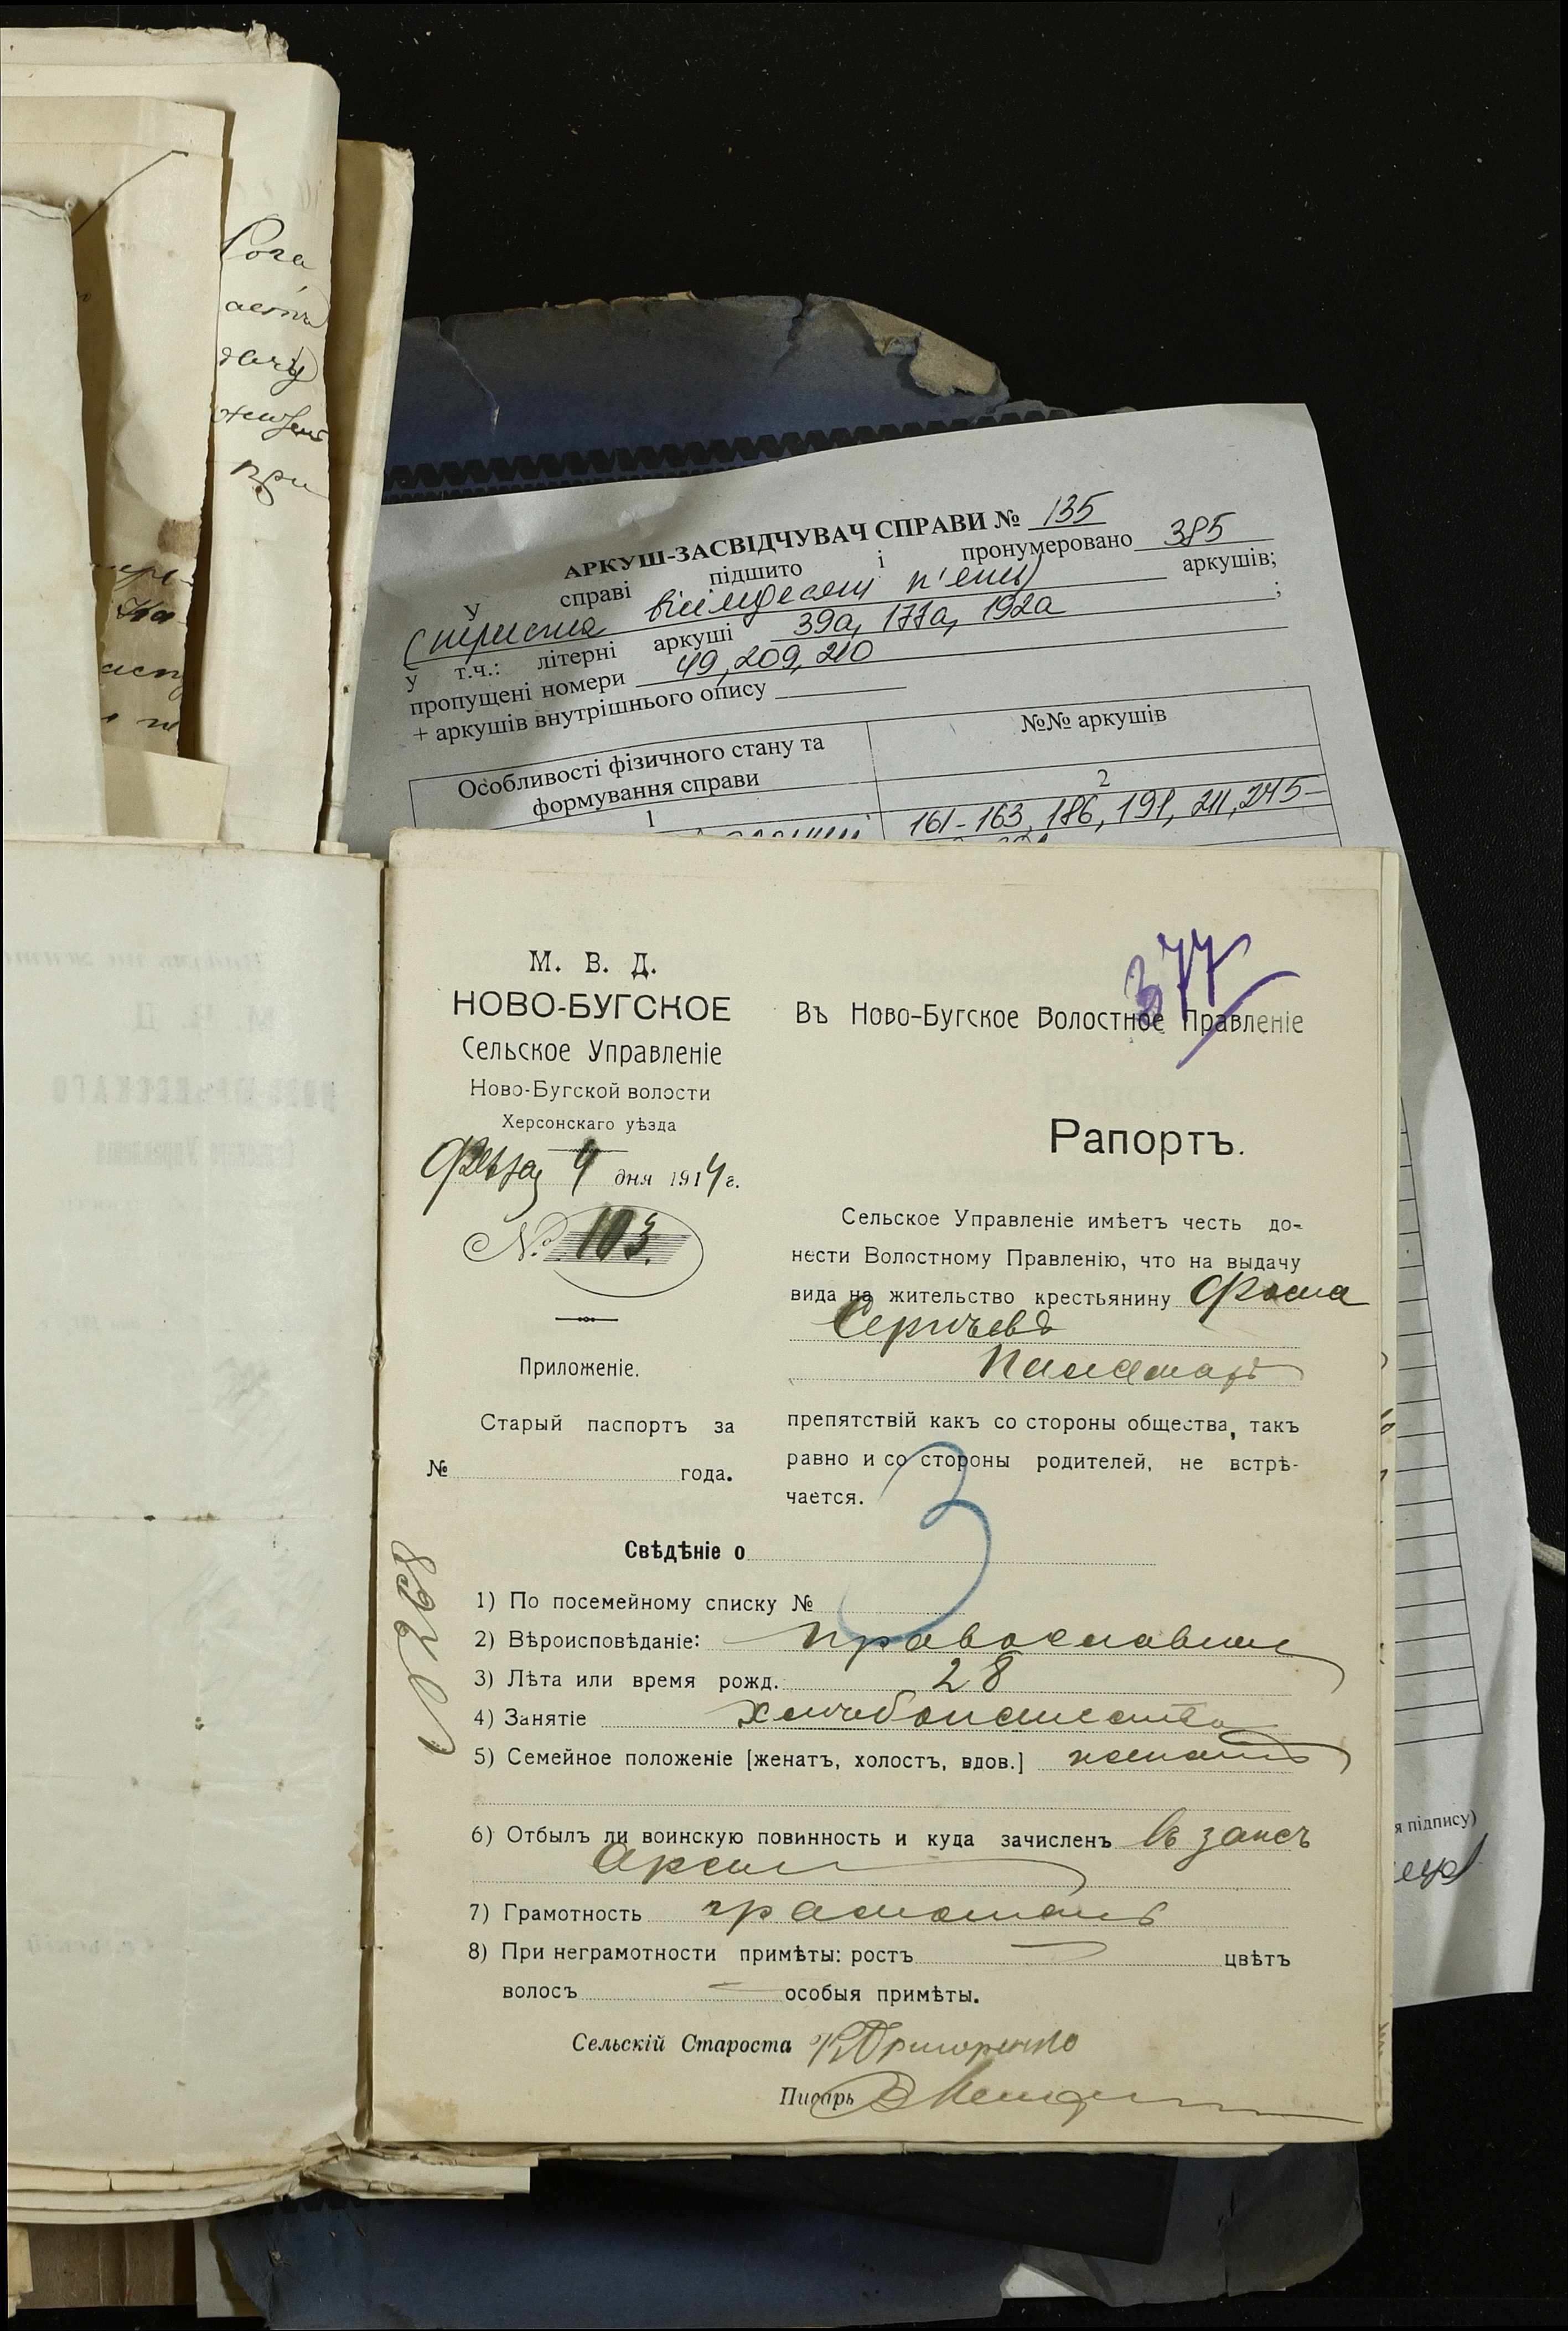 Рога
при
АРКУШ-ЗАСВІДЧУВАЧ СПРАВИ № 135
У справі підшито і пронумеровано 385
(триста вісімдесят п'ять) аркушів;
у т.ч.: літерні аркуші 39а, 177а, 192а ;
пропущені номери 49, 209, 210
+ аркушів внутрішнього опису
Особливості фізичного стану та формування справи
№№ аркушів
1
2
161-163, 186, 191, 211, 245-
я підпису)
377
М. В. Д.
НОВО-БУГСКОЕ
Сельское Управленіе
Ново-Бугской волости
Херсонскаго уѣзда
4 дня 1914 г.
№ 103.
Приложеніе.
Старый паспортъ за
№ года.
Въ Ново-Бугское Волостное Правленіе
Рапортъ.
Сельское Управленіе имѣетъ честь до-
нести Волостному Правленію, что на выдачу
вида на жительство крестьянину Фома
Сергѣевъ
препятствій какъ со стороны общества, такъ
равно и со стороны родителей, не встрѣ-
чается.
3
№ 268
Свѣдѣніе о
1) По посемейному списку №
2) Вѣроисповѣданіе: православное
3) Лѣта или время рожд. 28
4) Занятіе хлѣбопашество
5) Семейное положеніе [женатъ, холостъ, вдов.] женатъ
6) Отбылъ ли воинскую повинность и куда зачисленъ въ запсъ
Арміи
7) Грамотность грамотный
8) При неграмотности примѣты: ростъ цвѣтъ
волосъ особыя примѣты.
Сельскій Староста Григоренко
Писарь